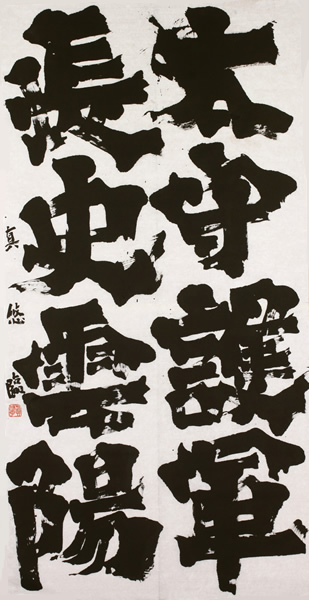 太守護軍
長史雲陽
真悠臨